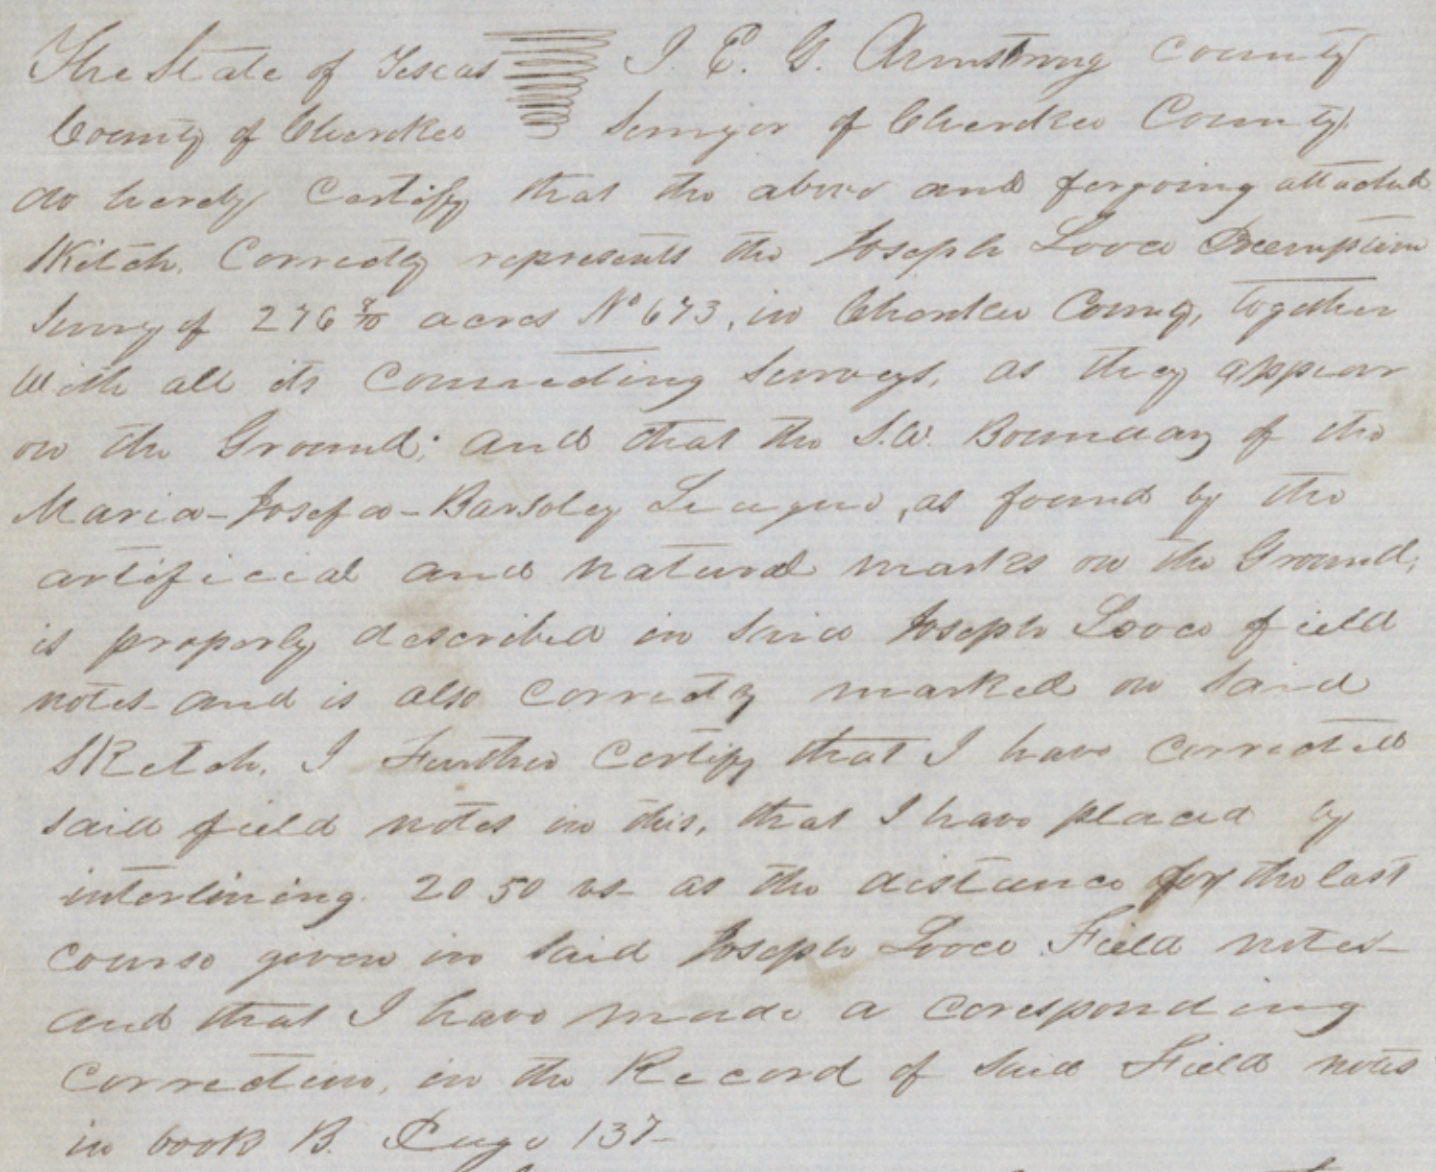 The State of Texas I. E. G. Armstrong County
County of Cherokee Surveyor of Cherokee County
do hereby Certify that the above and forgoing attached
Sketch. Correctly represents the Joseph Looce Preemption
Survey of 276 8/10 acres No 673, in Cherokee County, together
With all its Connecting Surveys, as they appear
on the Ground; and that the S.W. Boundary of the
Maria-Josefa-Barsoley League, as found by the
artificial and natural marks on the Ground,
is properly described in said Joseph Looce field
notes and is also correctly marked on said
Sketch. I Further Certify that I have corrected
said field notes in this, that I have placed by
interlining. 2050 vs as the distance for the last
course given in said Joseph Looce Field notes-
and that I have made a coresponding
Correction, in the Record of said Field notes
in book B. Page 137-